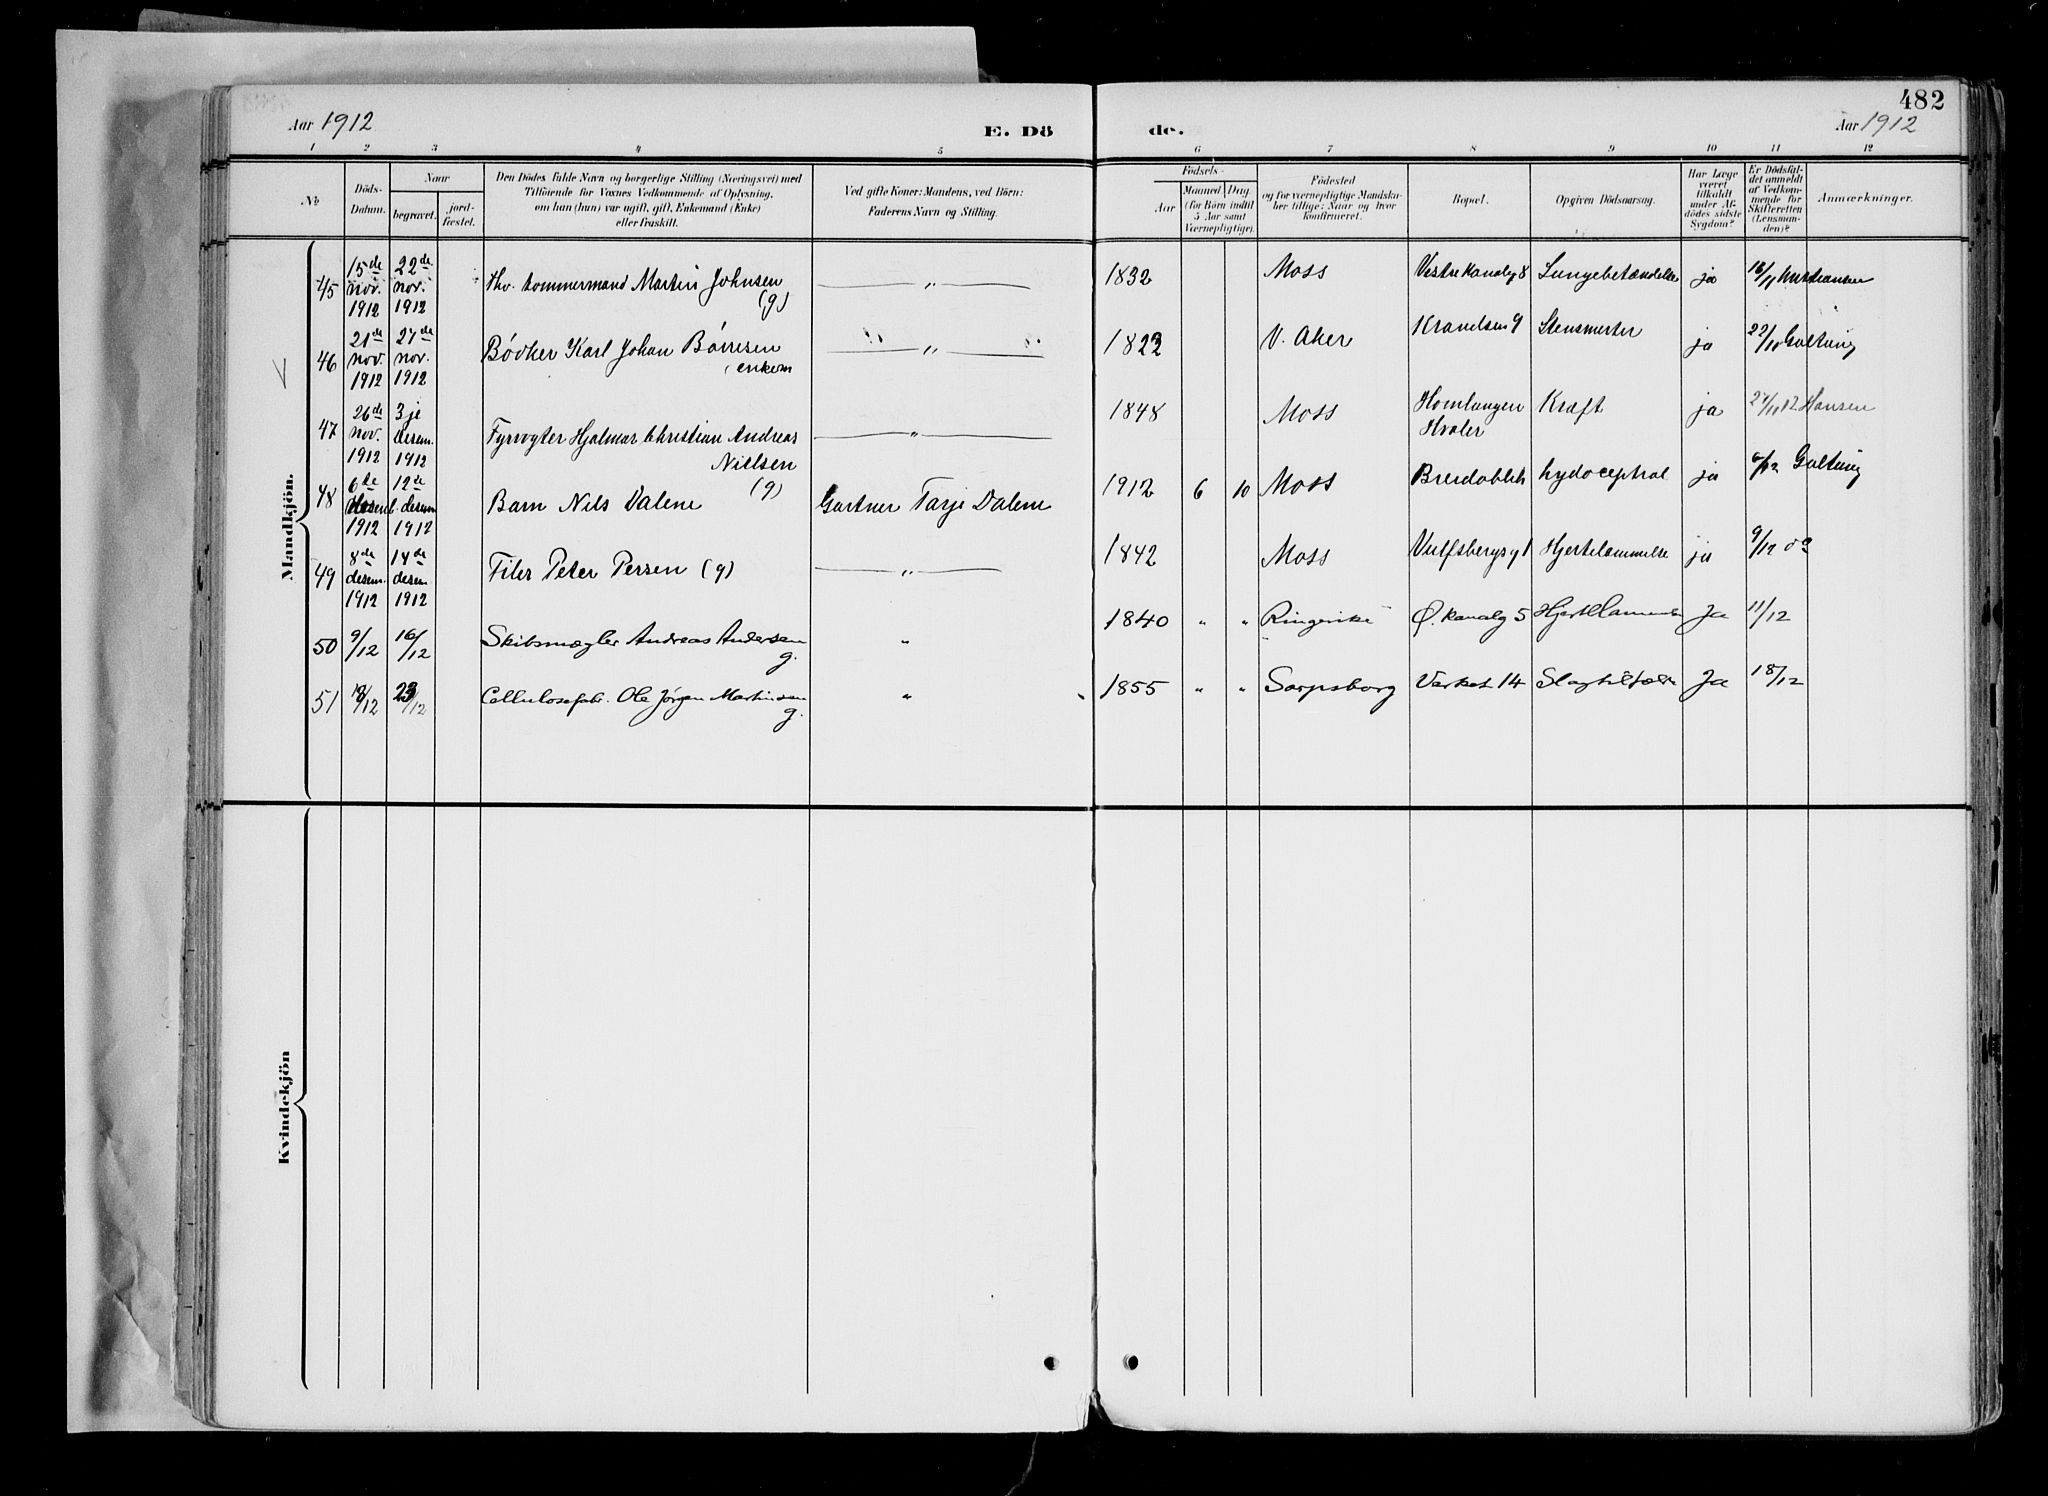 482
Aar 1912
E. Dö
de.
Aar 1912
1 2 3 4 5 6 7 8 9 10 11 12
No
Döds-
Datum.
Naar
begravet.
jord-
fæstet.
Den Dödes fulde Navn og borgerlige Stilling (Næringsvei) med
Tilföiende for Voxnes Vedkommende af Oplysning,
om han (hun) var ugift, gift, Enkemand (Enke)
eller fraskilt.
Ved gifte Koner: Mandens, ved Börn:
Faderens Navn og Stilling.
Födsels-
Aar
Maaned
Dag
(for Börn indtil
5 Aar samt
Værnepligtige).
Födested
og for værnepligtige Mandska-
ber tillige: Naar og hvor
Konfirmeret.
Bopæl.
Opgiven Dödsaarsag.
Har Læge
været
tilkaldt
under Af-
dödes sidste
Sygdom?
Er Dödsfal-
det anmeldt
af Vedkom-
mende for
Skifteretten
(Lensman-
den)?
Anmærkninger.
Mandkjön.
45 15de nov. 1912 22de nov. 1912 fhv. tommermand Martin Johnsen (g) „ 1832 Moss Vestre Kanalg 8 Lungebetændelse ja 16/11 Kristiansen
46 21de nov. 1912 27de nov. 1912 Bødker Karl Johan Børresen enkem „ 1823 V. Aker ja 22/10 Galtung
47 26de nov. 1912 3je desem. 1912 Fyrvogter Hjalmar Christian Andreas Nielsen (g) „ 1848 Moss Homlungen Hvaler Kræft ja 27/11 12 Hansen
48 6te desem 1912 12de desem 1912 Barn Nils Dalene Gartner Tarje Dalene 1912 6 10 Moss Bredablik hydocephal ja 6/12 Galtung
49 8de desem. 1912 14de desem 1912 Filer Peter Persen (g) „ 1842 Moss Vulfsbergsg 1 Hjertelammelse ja 9/12 do
50 9/12 16/12 Skibsmægler Andreas Andersen g. „ 1840 „ „ Ringerike Ø. Kanalg 5 Hjertelammelse Ja 11/12
51 18/12 23/12 Cellulosefabr. Ole Jørgen Martinsen g. „ 1855 „ „ Sarpsborg Verket 14 Slagtilfælde Ja 18/12
Kvindekjön